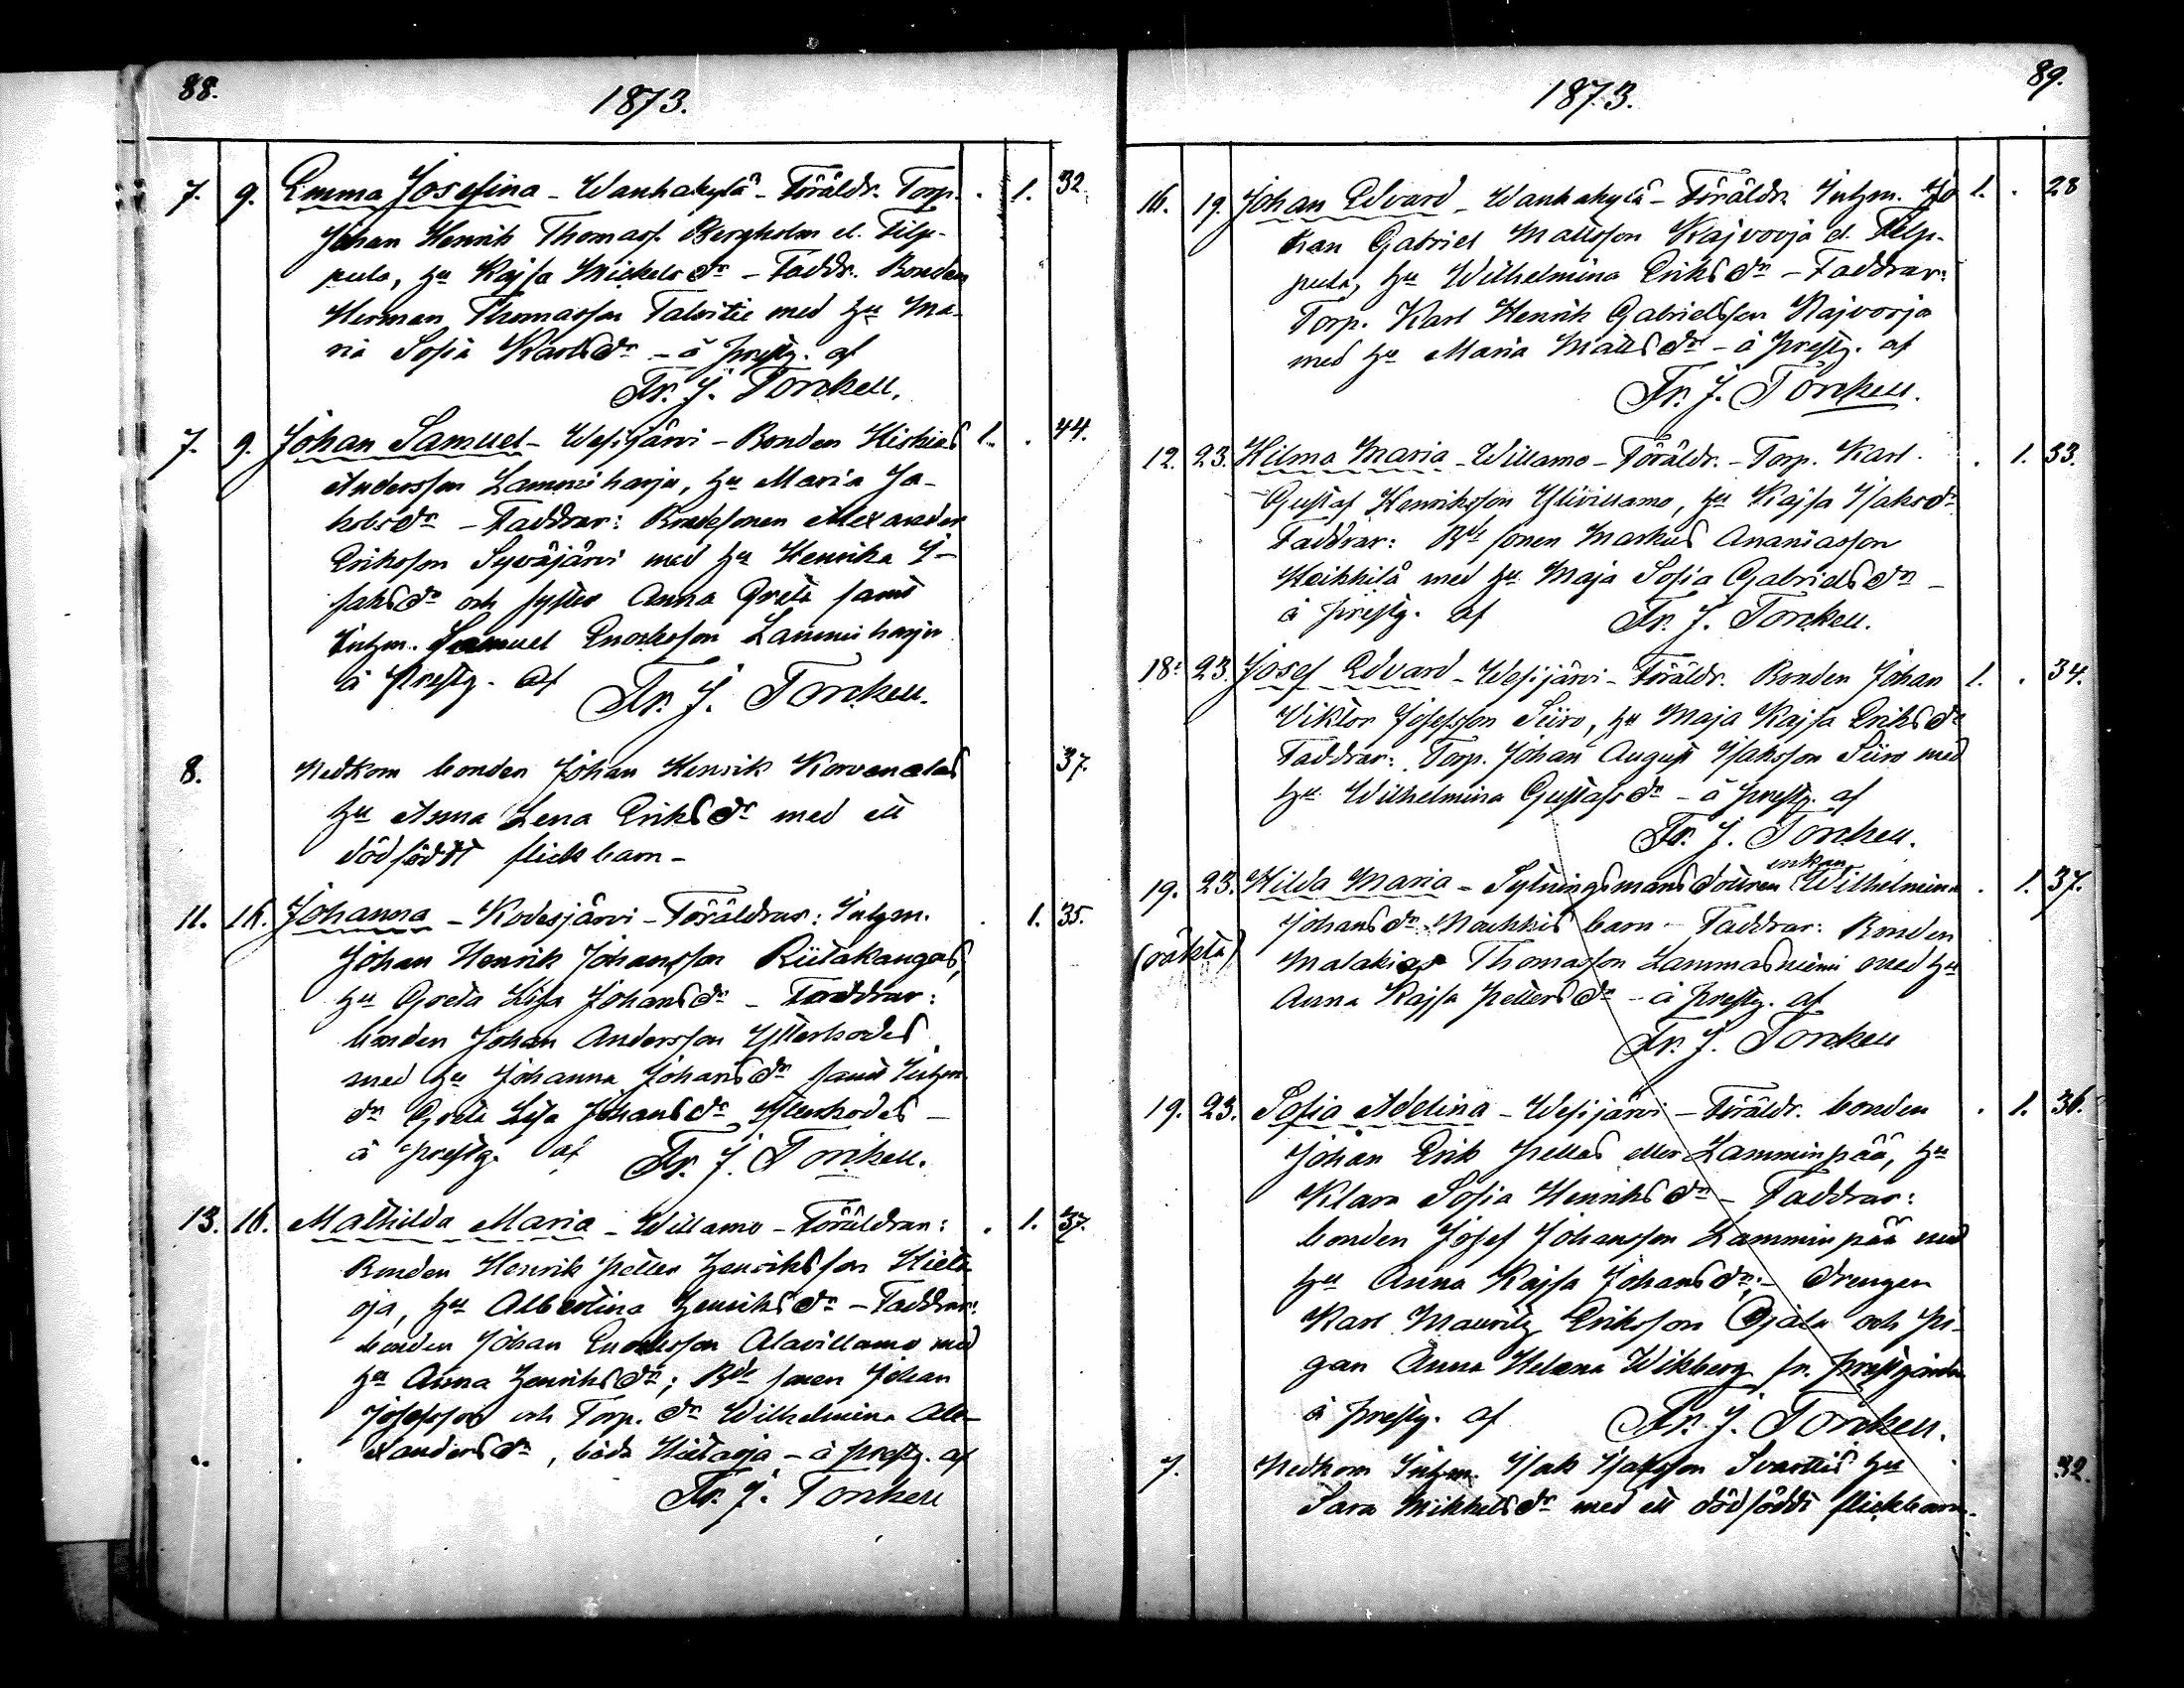 88.
1873.
7. 9. Emma Josefina - Wanhakylä - Föräldr. Torp. . 1. 32.
Johan Henrik Thomass. Bergholm el. Filp-
pula, hu Kajsa Mickelsdr - Faddr. Bonden
Herman Thomasson Talvitie med hu Ma-
ria Sofia Karlsdr - å prestg. af
Fr. J. Torckell.
7. 9. Johan Samuel - Wesijärvi - Bonden Hiskias 1. . 44.
Andersson Lamminharju, hu Maria Ja-
kobsdr - Faddrar: Bondesonen Alexander
Eriksson Syväjärvi med hu Henrika I-
saksdr och syster Anna Greta samt
Inhm. Samuel Enocksson Lamminharju
å Prestg. af
Fr. J. Torckell.
8. Nedkom bonden Johan Henrik Korvenelas 37.
hu Anna Lena Eriksdr med ett
dödfödtt flickbarn -
11. 16. Johanna - Kodesjärvi - Föräldrar: Inhm. . 1. 35.
Johan Henrik Johansson Riitakangas,
hu Greta Lisa Johansdr - Faddrar:
bonden Johan Andersson Ytterkodes
med hu Johanna Johansdr samt Inhm
dr Greta Lisa Johansdr Ytterkodes -
å prestg. af Fr. J. Torckell.
13. 16. Mathilda Maria - Willamo - Föräldrar: . 1. 37.
Bonden Henrik Petter Henriksson Hieta
oja, hu Albertina Henriksdr - Faddrar:
bonden Johan Enocksson Alavillamo med
hu Anna Henriksdr; Bde sonen Johan
Josefsson och Torp. dr Wilhelmina Ale-
xandersdr, båda Hietaoja - å prestg. af
Fr. J. Torckell
89.
1873.
16. 19. Johan Edvard - Wanhakylä - Föräldr. Inhm. Jo 1. . 28
han Gabriel Mattsson Kajvooja el. Filp-
pula, hu Wilhelmina Eriksdr - Faddrar:
Torp. Karl Henrik Gabrielsson Kajvooja
med hu Maria Mattsdr - å prestg. af
Fr. J. Torckell.
12. 23. Hilma Maria - Willamo - Föräldr. - Torp. Karl . 1. 33.
Gustaf Henriksson Ylivillamo, hu Kajsa Isaksdr
Faddrar: Bde sonen Markus Ananiasson
Heikkilä med hu Maja Sofia Gabrielsdr -
å prestg. af Fr. J. Torckell.
18. 23. Josef Edvard - Wesijärvi - Föräldr. Bonden Johan 1. . 34.
Viktor Josefsson Siiro, hu Maja Kajsa Eriksdr
Faddrar: Torp. Johan August Isaksson Siiro med
hu Wilhelmina Gustafsdr - å prestg. af
Fr. J. Torckell.
enkan
19. 23. Hilda Maria - Sytningsmansdottren Wilhelmina . 1. 37.
Johansdr Markkis barn - Faddrar: Bonden
(oäkta) Malakias Thomasson Lammasniemi med hu
Anna Kajsa Pettersdr - å prestg. af
Fr. J. Torckell
19. 23. Sofia Adelina - Wesijärvi - Föräldr. bonden . 1. 36.
Johan Erik Pellas eller Lamminpää, hu
Klara Sofia Henriksdr - Faddrar:
bonden Josef Johansson Lamminpää med
hu Anna Kajsa Johansdr; - drengen
Karl Mauritz Eriksson Ojala och pi-
gan Anna Helena Wikberg fr. prestgården
å prestg. af Fr. J. Torckell.
7. Nedkom Inhm. Isak Isaksson Svarttis hu 32.
Sara Mikkelsdr med ett dödfödt flickbarn.